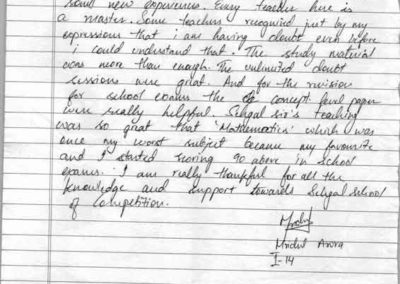 new experiences. Every teacher here is
a master. Some teachers recognised just by my
expressions that i am having doubt even before
i could understand that. The study material
was more than enough. The unlimited doubt
sessions were great. And for the revision
for school exams the concept level paper
were really helpful. Sehgal sir's teaching
was so great that 'Mathematics' which was
once my worst subject became my favourite
and I started scoring 90 above in School
exams. I am really thankful for all the
knowledge and support towards Sehgal School
of Competition.
Mridul Arora
I-14